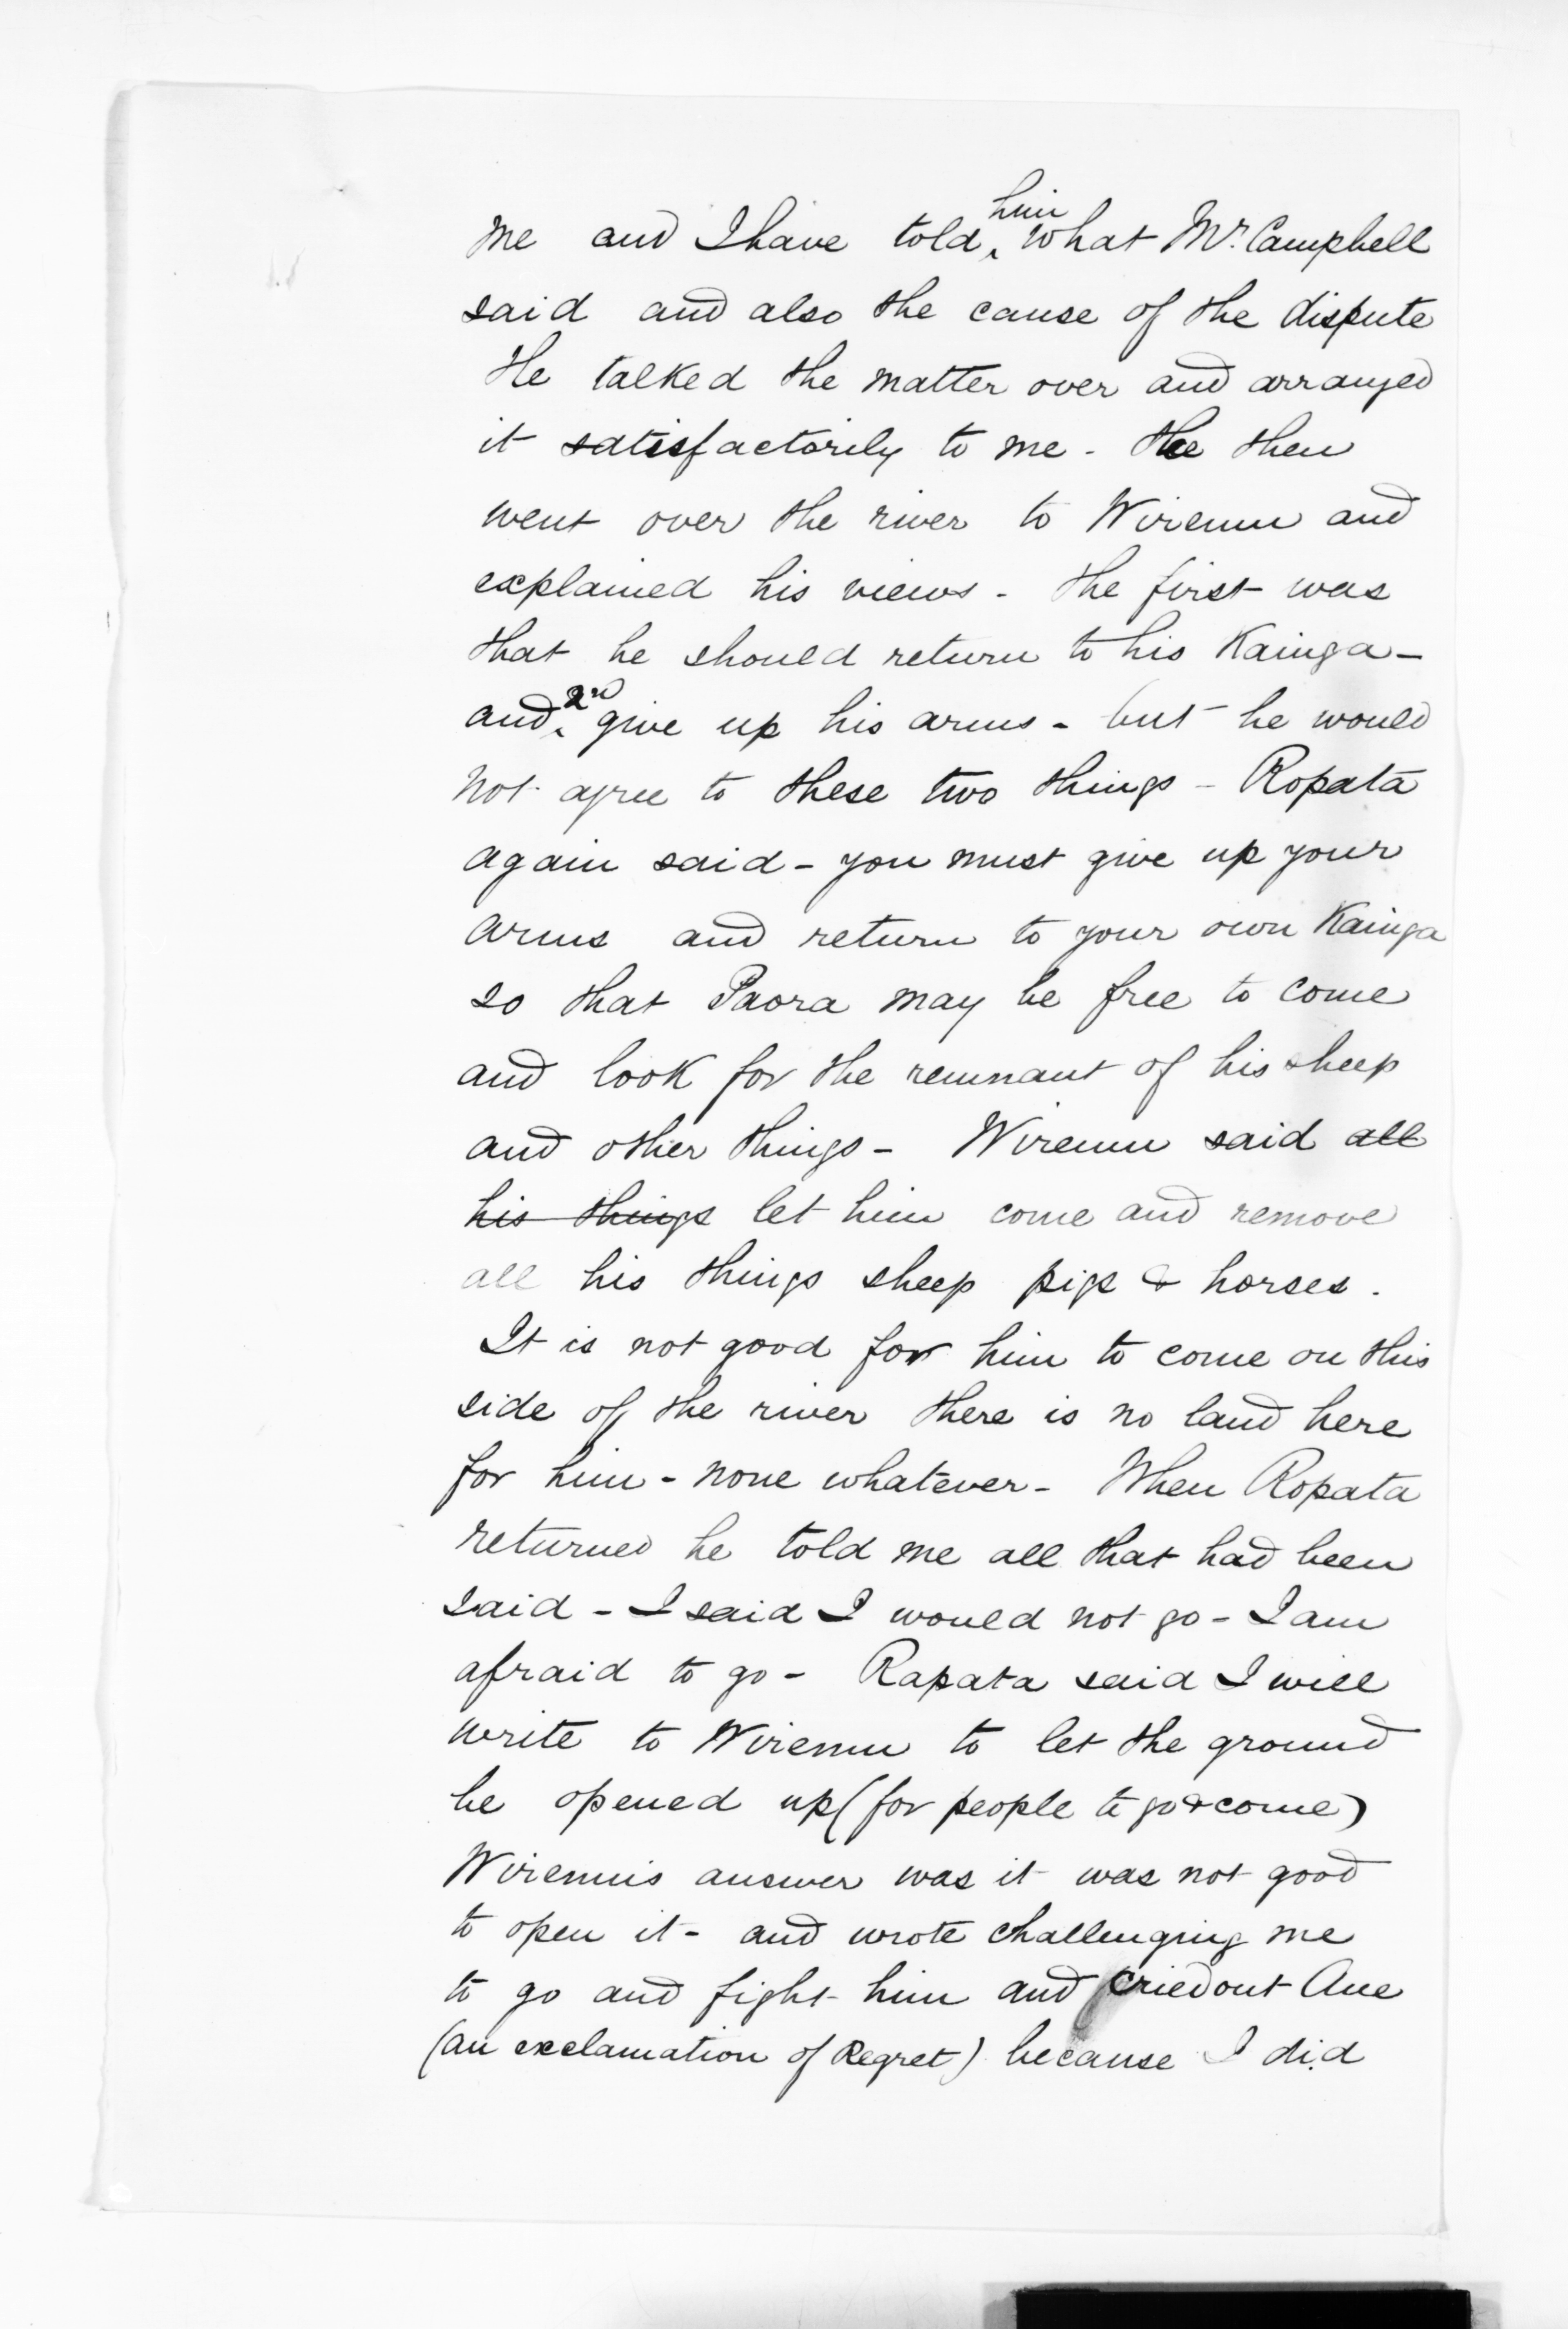 me and I have told him what Mr. Campbell
said and also the cause of the dispute
He talked the matter over and arranged
it satisfactorily to me - He then
went over the river to Wiremu and
explained his views - the first was
that he should return to his Kainga -
and 2nd give up his arms - but he would
not agree to these two things - Ropata
again said - you must give up your
arms and return to your own Kainga
so that Paora may be free to come
and look for the remnant of his sheep
and other things - Wiremu said all
his things let him come and remove
all his things sheep pigs & horses.
It is not good for him to come on this
side of the river there is no land here
for him - none whatever - When Ropata
returned he told me all that had been
said - I said I would not go - I am
afraid to go - Rapata said I will
write to Wiremu to let the ground
be opened up (for people to go & come)
Wiremu's answer was it was not good
to open it - and wrote challenging me
to go and fight him and cried out Aue
(an exclamation of Regret) because I did